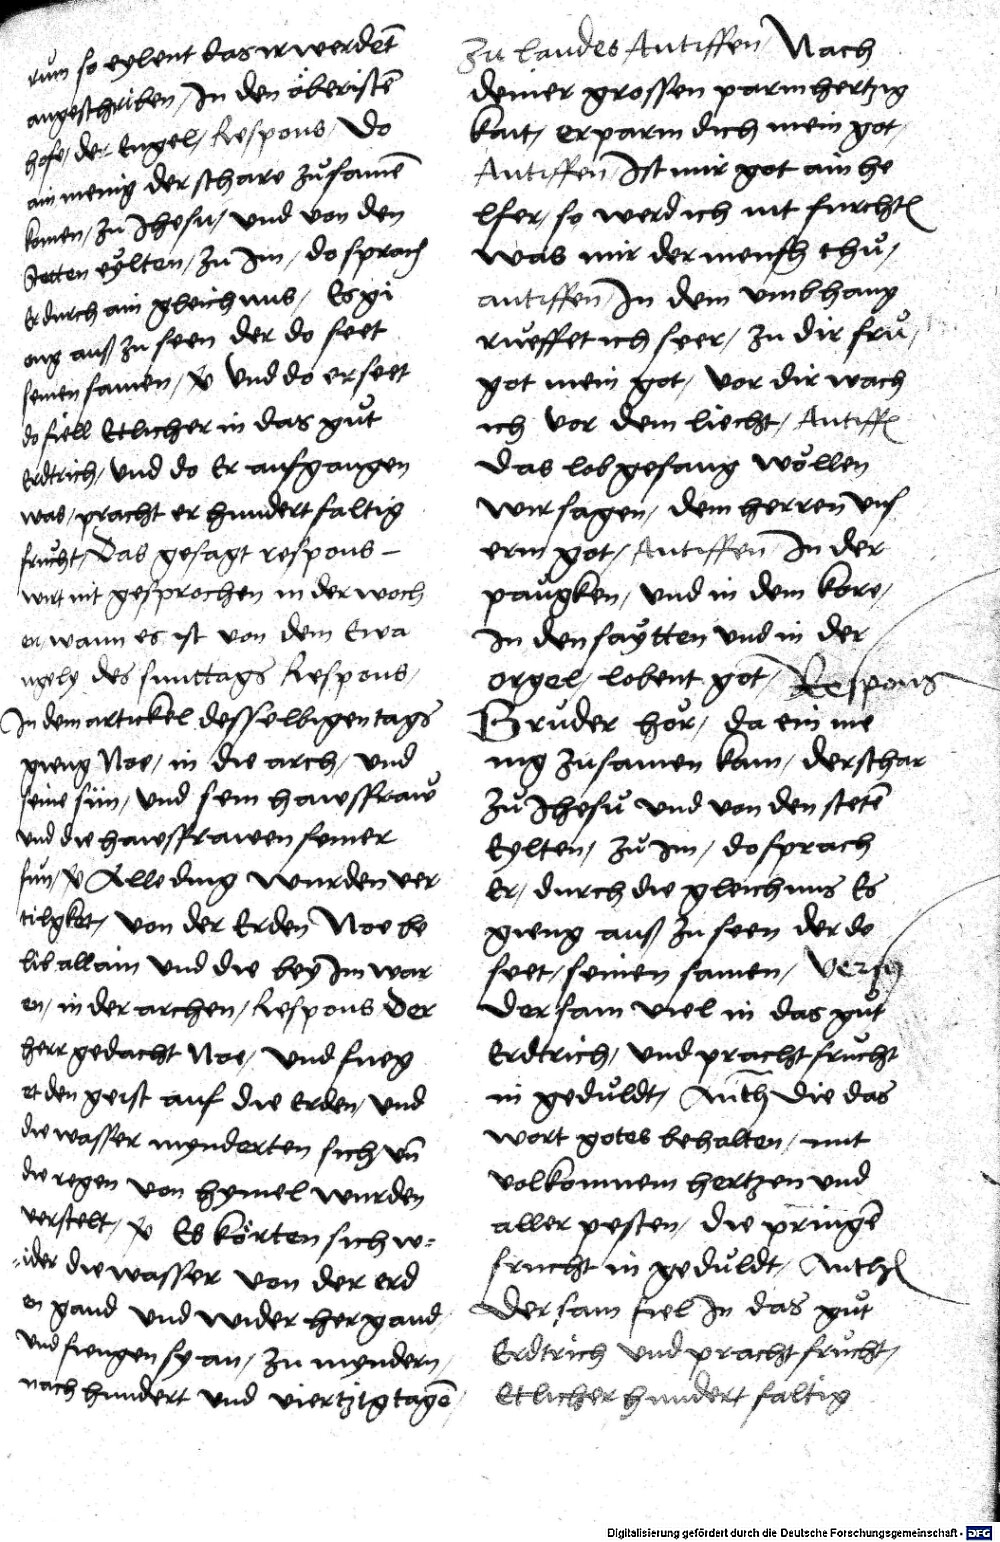 rum so eylent das ir werdet̄
angeschriben / In den öbersistē
hofe / der Engel / Respons / Do
ain menig der schare zůsamē
komen / zů Jhesu / und von den
stetten eylten / zů Im / do sprach
Er durch ain gleichnus / Es gi
eng auß zu seen der do seet
seinen samen / v̄ Und do er seet
do fiell Etlicher in das gůt
Erdtrich / und do Er aufgangen
was / pracht er hundertfaltig
frucht / Das gesagt respons –
wirt nit gesprochen in der woch
en wann es ist von dem Ewa
ngely des sunttags Respons /
In dem artickel desselbigen tags
gieng Noe / in die arch / und
seine sün / und sein hawsfraw
und die hawsfrawen seiner
sün / v̄ Alle ding wurden ver
tilgket / von der Erden Noe be
lib allain und die bey Im war
en / in der archen / Respons Der
herr gedacht Noe / und fueg
et den geist auf die Erden / und
die wasser mynderten sich / un̄
die regen von hymel wurden
verstelt / v̄ Es körten sich w=
=ider die wasser von der erd
en gand und wider hergand /
und fiengen sy an / zu myndern /
nach hundert und viertzig tagē /
zu laudes Antiffen Nach
deiner grossen parmhertzig
kait / erparm dich mein got /
Antiffen Ist mir got ain he
lfer / so werd ich nit furchtē
was mir der mensch thů /
antiffen In dem umbhang
rueffet ich seer / zu dir frů /
got mein got / vor dir wach
ich vor dem liecht / Antiffē
Das lobgesang wöllen
wir sagen / dem herren uns
erm got / Antiffen In der
paugken / und in dem kore /
In den saytten und in der
orgel / lobent got / Respons
Bruder hör / da ein me
nig zusamen kam / der schar
zů Jhesů und von den stetē
Eylten / zů im / do sprach
Er / durch die gleichnus Es
gieng auß zu seen der do
seet / seinen samen / Vers
Der sam viel in das gůt
Erdtrich / und pracht frucht
in geduldt / Anth̄ Die das
wort gotes behalten / mit
volkomnem hertzen und
aller pesten / die pringē
frucht in geduldt / Anth̄
Der sam fiel In das gůt
Erdtrich und pracht frucht /
Etlicher hundert faltig
Digitalisierung gefördert durch die Deutsche Forschungsgemeinschaft - DFG